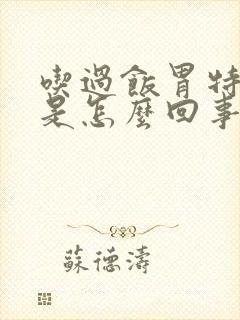 喫過飯胃特
是怎麼回事
蘇德濤